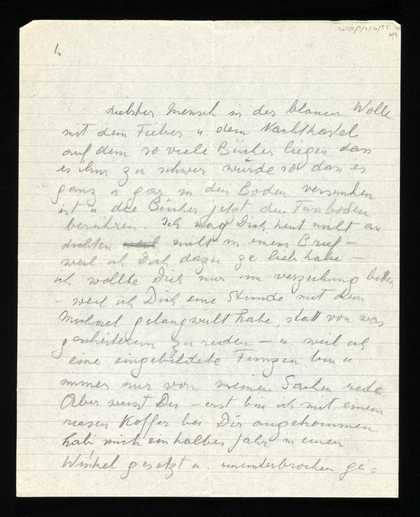 1.
liebster Mensch in der blauen Wolle
mit dem Fieber u dem Nachtkastel
auf dem so viele Bücher liegen dass
es ihm zu schwer wurde so dass es
ganz u gar in den Boden versunken
ist u die Bücher jetzt den Fussboden
berühren. Ich mag Dich heut nicht an
dichten nicht in einem Brief –
weil ich Dich dazu zu lieb habe –
ich wollte Dich nur um verzeihung bitten
– weil ich Dich eine Stunde mit dem
gelangweilt habe, statt von was
gescheiterem zu reden – u weil ich
eine eingebildete bin u
immer nur von meinen Sachen rede
Aber weisst Du – erst bin ich mit einem
riesen Koffer bei Dir angekommen
hab mich ein halbes Jahr in einen
Winkel gesetzt u. ununterbrochen ge=